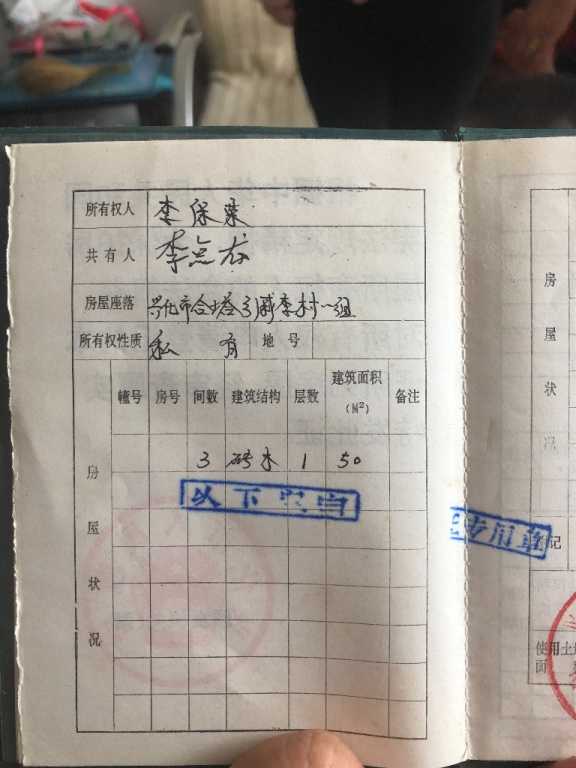 所有权人 李保荣
共有人
房屋座落 兴化市合塔 李村一组
所有权性质 私有 地号
幢号 房号 间数 建筑结构 层数 建筑面积(M²) 备注
3 砖木 1 50
以下空白
房屋状况
房屋状况
专用章
记
使用土
面